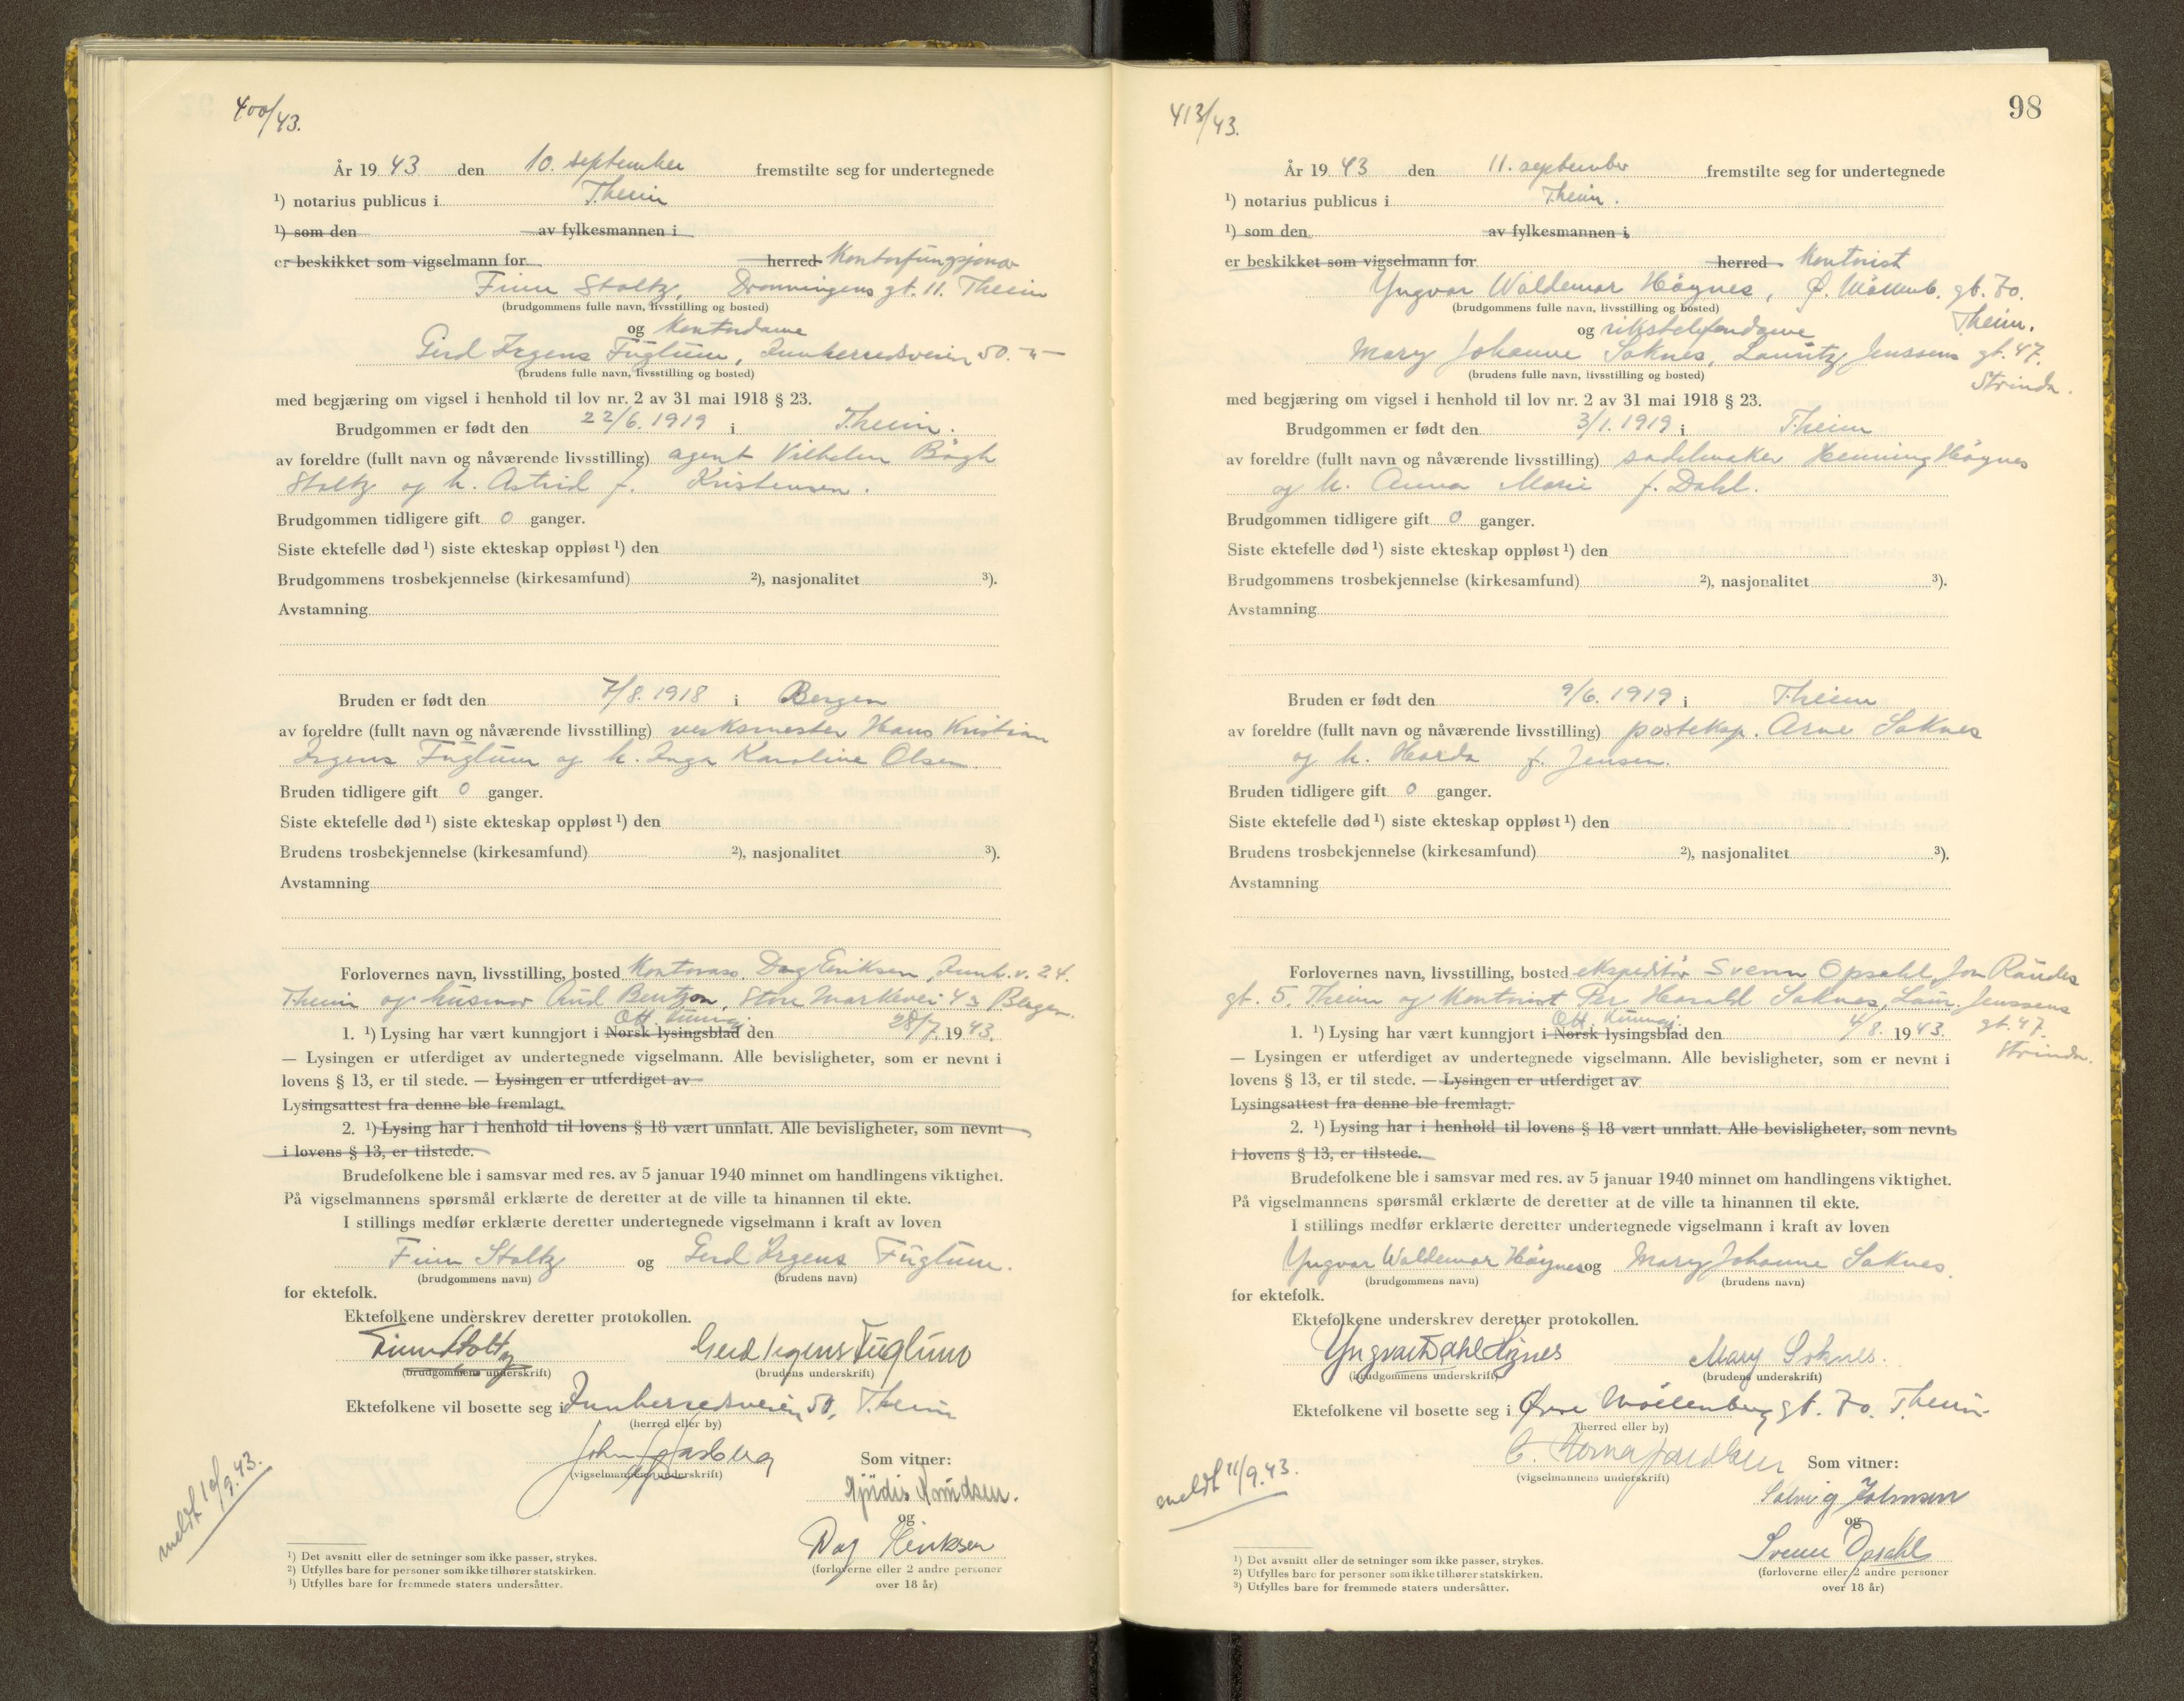 400/43.
År 19 43 den 10. september fremstilte seg for undertegnede
¹) notarius publicus i T.heim
¹) som den av fylkesmannen i
er beskikket som vigselmann for herred Kontorfunksjonær
Finn Stoltz, Dronningens gt. 11. T.heim
(brudgommens fulle navn, livsstilling og bosted)
og Kontordame
Gerd Irgens Fuglum, Innherredsveien 50. -"-
(brudens fulle navn, livsstilling og bosted)
med begjæring om vigsel i henhold til lov nr. 2 av 31 mai 1918 § 23.
Brudgommen er født den 22/6. 1919 i T.heim.
av foreldre (fullt navn og nåværende livsstilling) agent Vilhelm Bøgh
Stoltz og h. Astrid f. Kristensen.
Brudgommen tidligere gift 0 ganger.
Siste ektefelle død ¹) siste ekteskap oppløst ¹) den
Brudgommens trosbekjennelse (kirkesamfund) ²), nasjonalitet ³).
Avstamning
Bruden er født den 7/8. 1918 i Bergen
av foreldre (fullt navn og nåværende livsstilling) verksmester Hans Kristian
Irgens Fuglum og h. Inga Karoline Olsen.
Bruden tidligere gift 0 ganger.
Siste ektefelle død ¹) siste ekteskap oppløst ¹) den
Brudens trosbekjennelse (kirkesamfund) ²), nasjonalitet ³).
Avstamning
Forlovernes navn, livsstilling, bosted Kontorass. Dag Henriksen, Innh.v. 24.
T.heim og husmor Aud Bentzon, Store Markevei 43 Bergen.
Off. kunngj.
1. ¹) Lysing har vært kunngjort i Norsk lysingsblad den 28/7. 19 43.
— Lysingen er utferdiget av undertegnede vigselmann. Alle bevisligheter, som er nevnt i
lovens § 13, er til stede. — Lysingen er utferdiget av
Lysingsattest fra denne ble fremlagt.
2. ¹) Lysing har i henhold til lovens § 18 vært unnlatt. Alle bevisligheter, som nevnt
i lovens § 13, er tilstede.
Brudefolkene ble i samsvar med res. av 5 januar 1940 minnet om handlingens viktighet.
På vigselmannens spørsmål erklærte de deretter at de ville ta hinannen til ekte.
I stillings medfør erklærte deretter undertegnede vigselmann i kraft av loven
Finn Stoltz og Gerd Irgens Fuglum.
(brudgommens navn) (brudens navn)
for ektefolk.
Ektefolkene underskrev deretter protokollen.
Finn Stoltz Gerd Irgens Fuglum
(brudgommens underskrift) (brudens underskrift)
Ektefolkene vil bosette seg i Innherredsveien 50, T.heim
(herred eller by)
John
(vigselmannens underskrift)
Som vitner:
Hjördis Knudsen.
og
Dag Henriksen
(forloverne eller 2 andre personer
over 18 år)
meldt 10/9.43.
¹) Det avsnitt eller de setninger som ikke passer, strykes.
²) Utfylles bare for personer som ikke tilhører statskirken.
³) Utfylles bare for fremmede staters undersåtter.
98
413/43.
År 19 43 den 11. september fremstilte seg for undertegnede
¹) notarius publicus i T.heim.
¹) som den av fylkesmannen i
er beskikket som vigselmann for herred Kontorist
Yngvar Waldemar Høynes, Ø. Møllenb. gt. 70.
T.heim.
(brudgommens fulle navn, livsstilling og bosted)
og rikstelefondame
Mary Johanne Soknes, Lauritz Jenssens gt. 47.
Strinda.
(brudens fulle navn, livsstilling og bosted)
med begjæring om vigsel i henhold til lov nr. 2 av 31 mai 1918 § 23.
Brudgommen er født den 3/1. 1919 i T.heim
av foreldre (fullt navn og nåværende livsstilling) sadelmaker Henning Høynes
og h. Anna Marie f. Dahl.
Brudgommen tidligere gift 0 ganger.
Siste ektefelle død ¹) siste ekteskap oppløst ¹) den
Brudgommens trosbekjennelse (kirkesamfund) ²), nasjonalitet ³).
Avstamning
Bruden er født den 9/6. 1919 i T.heim
av foreldre (fullt navn og nåværende livsstilling) posteksp. Arne Soknes
og h. Harda f. Jensen.
Bruden tidligere gift 0 ganger.
Siste ektefelle død ¹) siste ekteskap oppløst ¹) den
Brudens trosbekjennelse (kirkesamfund) ²), nasjonalitet ³).
Avstamning
Forlovernes navn, livsstilling, bosted ekspeditør Svenn Opsahl, Jon Raudes
gt. 5, T.heim og Kontorist Per Harald Soknes, Laur. Jenssens
gt. 47.
Strinda.
Off. kunngj.
1. ¹) Lysing har vært kunngjort i Norsk lysingsblad den 4/8. 19 43.
— Lysingen er utferdiget av undertegnede vigselmann. Alle bevisligheter, som er nevnt i
lovens § 13, er til stede. — Lysingen er utferdiget av
Lysingsattest fra denne ble fremlagt.
2. ¹) Lysing har i henhold til lovens § 18 vært unnlatt. Alle bevisligheter, som nevnt
i lovens § 13, er tilstede.
Brudefolkene ble i samsvar med res. av 5 januar 1940 minnet om handlingens viktighet.
På vigselmannens spørsmål erklærte de deretter at de ville ta hinannen til ekte.
I stillings medfør erklærte deretter undertegnede vigselmann i kraft av loven
Yngvar Waldemar Høynes og Mary Johanne Soknes.
(brudgommens navn) (brudens navn)
for ektefolk.
Ektefolkene underskrev deretter protokollen.
Yngvar Dahl Høynes Mary Soknes.
(brudgommens underskrift) (brudens underskrift)
Ektefolkene vil bosette seg i Øvre Møllenberg gt. 70. T.heim.
(herred eller by)
(vigselmannens underskrift)
Som vitner:
Solveig Johnsen
og
Svenn Opsahl
(forloverne eller 2 andre personer
over 18 år)
meldt 11/9.43.
¹) Det avsnitt eller de setninger som ikke passer, strykes.
²) Utfylles bare for personer som ikke tilhører statskirken.
³) Utfylles bare for fremmede staters undersåtter.